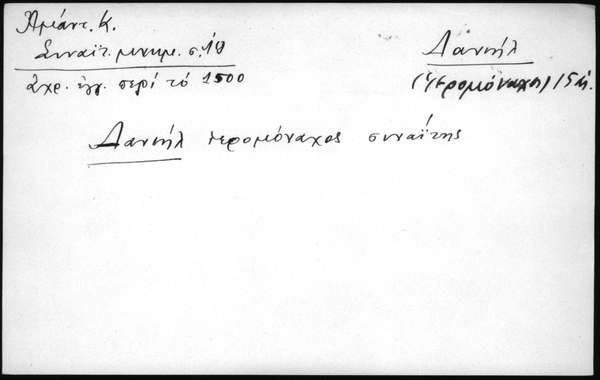 Ἀμάντ. Κ.
Σιναϊτ. μνημ. σ. 19
Ἀχρ. ἔγγ. περί τό 1500
Δανιήλ
(ἱερομόναχος) 15 αἰ.
Δανιήλ ἱερομόναχος σιναΐτης